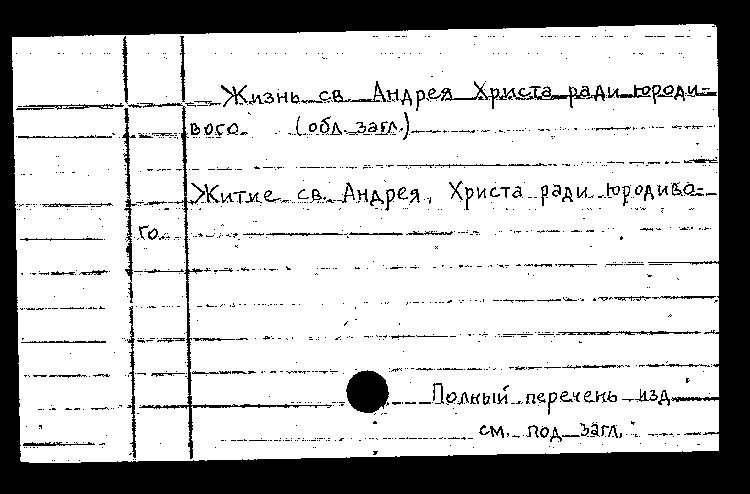 Жизнь св. Андрея Христа ради юроди-
вого. (обл. загл.)
Житие св. Андрея, Христа ради юродиво-
го.
Полный перечень изд.
см. под загл.